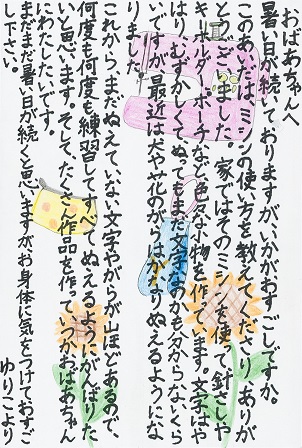 おばあちゃんへ
暑い日が続いておりますが、いかがおすごしですか。
このあいだは、ミシンの使い方を教えてくださり、ありが
とうございました。家ではそのミシンを使って針さしや
キーホルダー、ポーチなど色々な物を作っています。文字はや
はりむずかしくて、ぬってもただ文字なのかも分からないくら
いですが、最近は犬や花のがらはかなりぬえるようにな
りました。
これから、まだぬえていない文字やがらが山ほどあるので、
何度も何度も練習してすべてぬえるようにがんばりた
いと思います。そして、たくさん作品を作っていつかおばあちゃん
にわたしたいです。
まだまだ暑い日が続くと思いますがお身体に気をつけておすご
し下さい。
ゆりこより